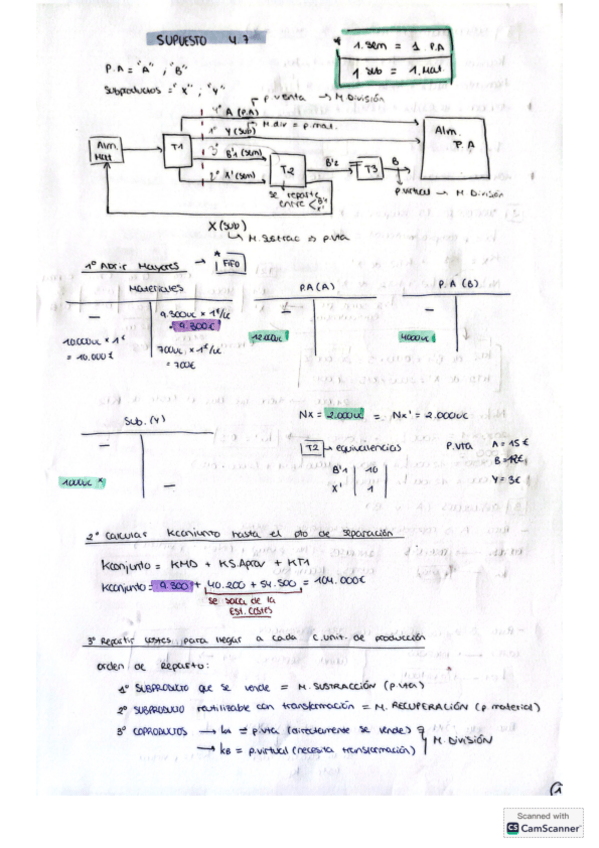 SUPUESTO 4.7
* 1. sem = 1 P.A
1 sub = 1. Mat.
P.A = "A" ; "B"
Subproductos = "X" ; "Y"
p venta → M. División
4º A (P.A)
1º Y (sub)
M. div = p. mat.
3º B'1 (sem)
2º X' (sem)
Alm. Mat
T1
T2
B'2
T3
B
Alm. P.A
se reparte entre B'2 X'
p. virtual → M. División
X (sub)
↳ M. Sustrac ⇒ p. vta
1º Abrir Mayores → * FIFO
Materiales
P.A (A)
P.A (B)
9.300uc × 1€/uc
= 9.300€
10.000uc × 1€
= 10.000€
12.000uc
4000uc
700uc × 1€/uc
= 700€
Sub. (Y)
Nx = 2.000uc = Nx' = 2.000uc
T2 → equivalencias
B'1 | 10
X' | 1
P. vta A = 15€
B = 12€
Y = 3€
1000uc *
2º Calcular Kconjunto hasta el pto de separación
Kconjunto = KMD + KS.Aprov + KT1
Kconjunto = 9.300 + 40.200 + 54.500 = 104.000€
se saca de la
Est. costes
3º Repartir costes para llegar a cada C. unit. de producción
orden de Reparto:
1º SUBPRODUCTO que se vende = M. SUSTRACCIÓN (p vta)
2º SUBPRODUCTO reutilizable con transformación = M. RECUPERACIÓN (p material)
3º COPRODUCTOS → kA = p. vta (directamente se vende)
→ kB = p. virtual (necesita transformación)
M. División
1
Scanned with
CS CamScanner